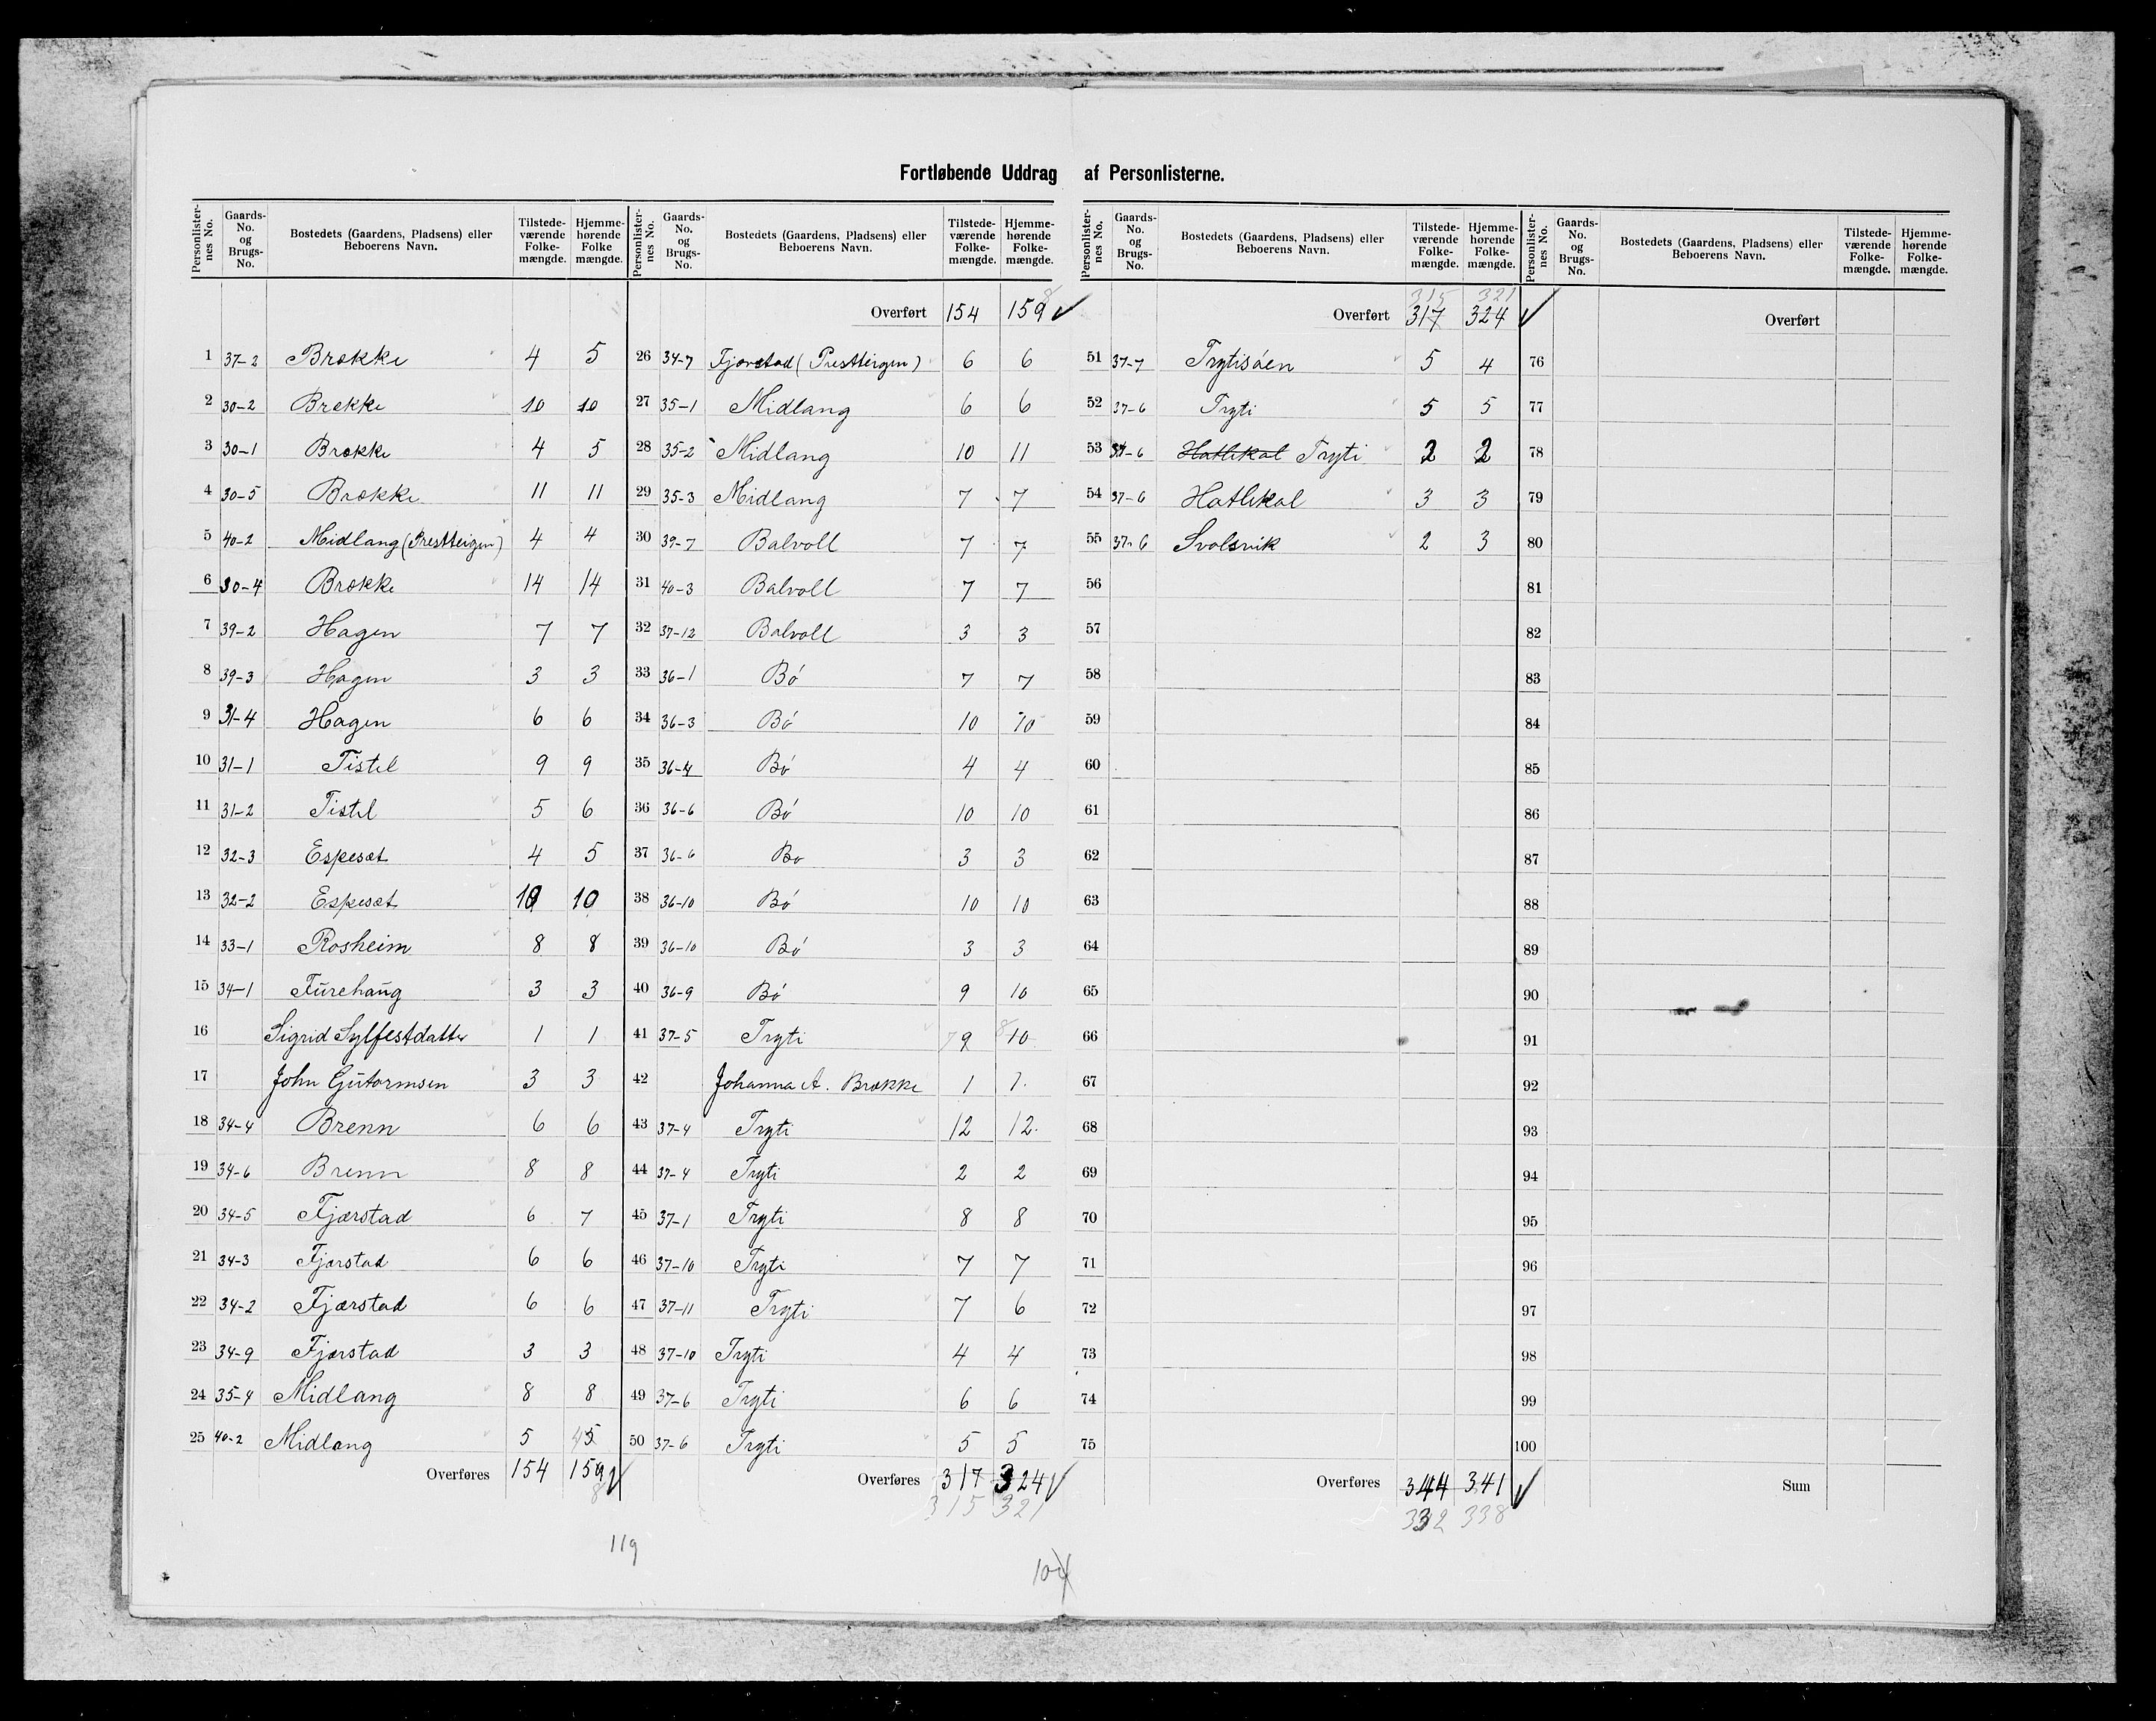 Fortløbende Uddrag af Personlisterne.
Personlisternes No. Gaards-No. og Brugs-No. Bostedets (Gaardens, Pladsens) eller Beboerens Navn. Tilstedeværende Folkemængde. Hjemmehørende Folkemængde.
1 37-2 Brække 4 5
2 30-2 Brekke 10 10
3 30-1 Brække 4 5
4 30-5 Brække 11 11
5 40-2 Midlang (Prestteigen) 4 4
6 30-4 Brække 14 14
7 39-2 Hagen 7 7
8 39-3 Hagen 3 3
9 31-4 Hagen 6 6
10 31-1 Tistel 9 9
11 31-2 Tistel 5 6
12 32-3 Espesæt 4 5
13 32-2 Espesæt 10 10
14 33-1 Rosheim 8 8
15 34-1 Furehaug 3 3
16 Sigrid Sylfestdatter 1 1
17 John Gutormsen 3 3
18 34-4 Brenn 6 6
19 34-6 Brenn 8 8
20 34-5 Fjærstad 6 7
21 34-3 Fjærstad 6 6
22 34-2 Fjærstad 6 6
23 34-9 Fjærstad 3 3
24 35-4 Midlang 8 8
25 40-2 Midlang 5 45
Overføres 154 159
8
Personlisternes No. Gaards-No. og Brugs-No. Bostedets (Gaardens, Pladsens) eller Beboerens Navn. Tilstedeværende Folkemængde. Hjemmehørende Folkemængde.
Overført 154 159 8
26 34-7 Fjærstad (Prestteigen) 6 6
27 35-1 Midlang 6 6
28 35-2 Midlang 10 11
29 35-3 Midlang 7 7
30 39-7 Balvoll 7 7
31 40-3 Balvoll 7 7
32 37-12 Balvoll 3 3
33 36-1 Bó 7 7
34 36-3 Bó 10 10
35 36-4 Bó 4 4
36 36-6 Bó 10 10
37 36-6 Bo 3 3
38 36-10 Bó 10 10
39 36-10 Bó 3 3
40 36-9 Bó 9 10
41 37-5 Tryti 7 9 8 10
42 Johanna A. Brække 1 1
43 37-4 Tryti 12 12
44 37-4 Tryti 2 2
45 37-1 Tryti 8 8
46 37-10 Tryti 7 7
47 37-11 Tryti 7 6
48 37-10 Tryti 4 4
49 37-6 Tryti 6 6
50 37-6 Tryti 5 5
Overføres 317 324
315 321
Personlisternes No. Gaards-No. og Brugs-No. Bostedets (Gaardens, Pladsens) eller Beboerens Navn. Tilstedeværende Folkemængde. Hjemmehørende Folkemængde.
315 321
Overført 317 324
51 37-7 Trytisóen 5 4
52 37-6 Tryti 5 5
53 37-6 Hatlekal Tryti 2 2
54 37-6 Hatlekal 3 3
55 37-6 Svolsvik 2 3
56
57
58
59
60
61
62
63
64
65
66
67
68
69
70
71
72
73
74
75
Overføres 344 341
332 338
Personlisternes No. Gaards-No. og Brugs-No. Bostedets (Gaardens, Pladsens) eller Beboerens Navn. Tilstedeværende Folkemængde. Hjemmehørende Folkemængde.
Overført
76
77
78
79
80
81
82
83
84
85
86
87
88
89
90
91
92
93
94
95
96
97
98
99
100
Sum
119
104